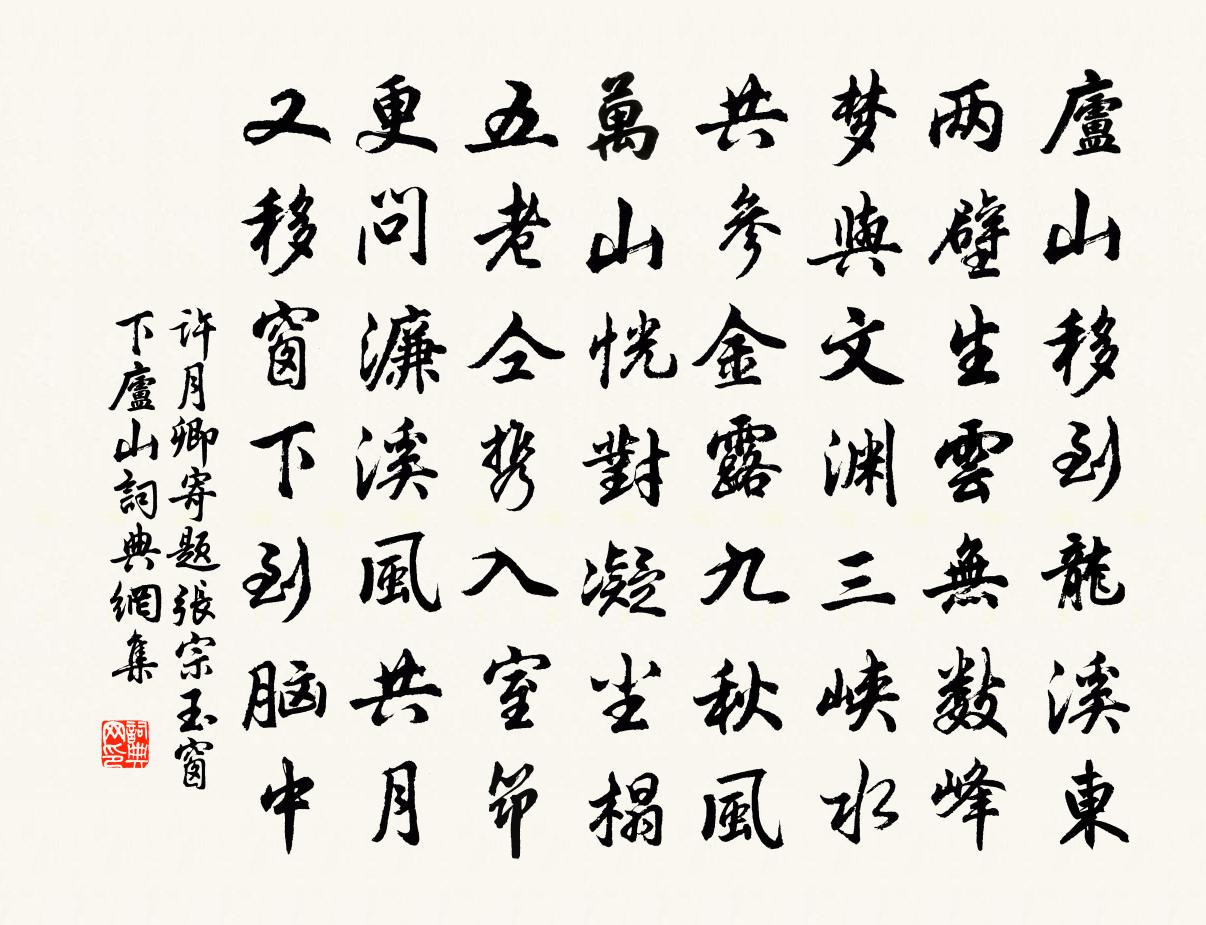 廬山移到龍溪東
两壁生雲無数峰
梦與文渊三峡水
共參金露九秋風
萬山恍對凝尘榻
五老仝携入室筇
更問濂溪風共月
又移窗下到脑中
許月卿寄题張宗玉窗
下廬山詞典網集
詞典
网印